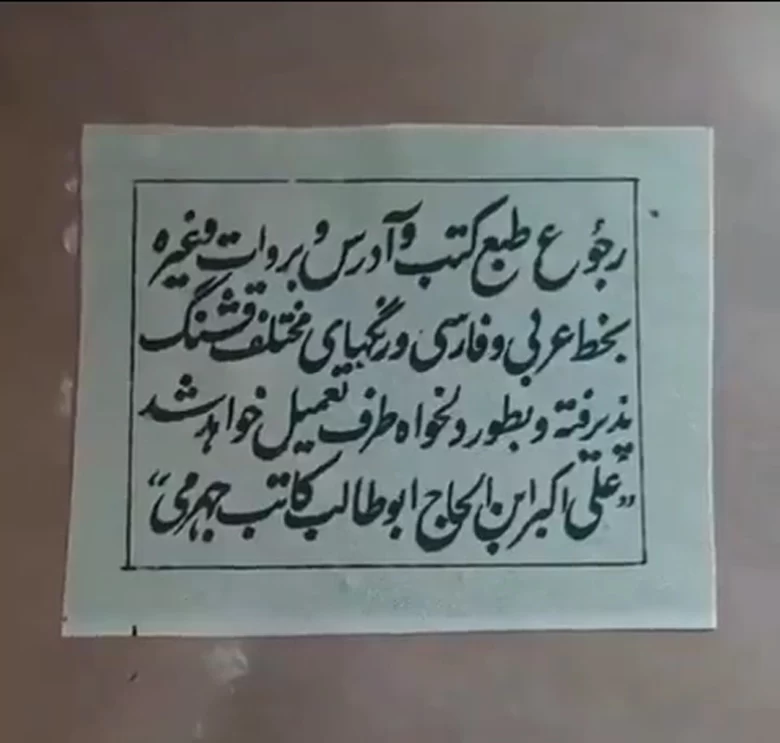 رجوع طبع کتب و آدرس و بروات و غیره
بخط عربی و فارسی و رنگهای مختلف قشنگ
پذیرفته و بطور دلخواه طرف تعمیل خواهد شد
„علی اکبر ابن الحاج ابوطالب کاتب جهرمی“